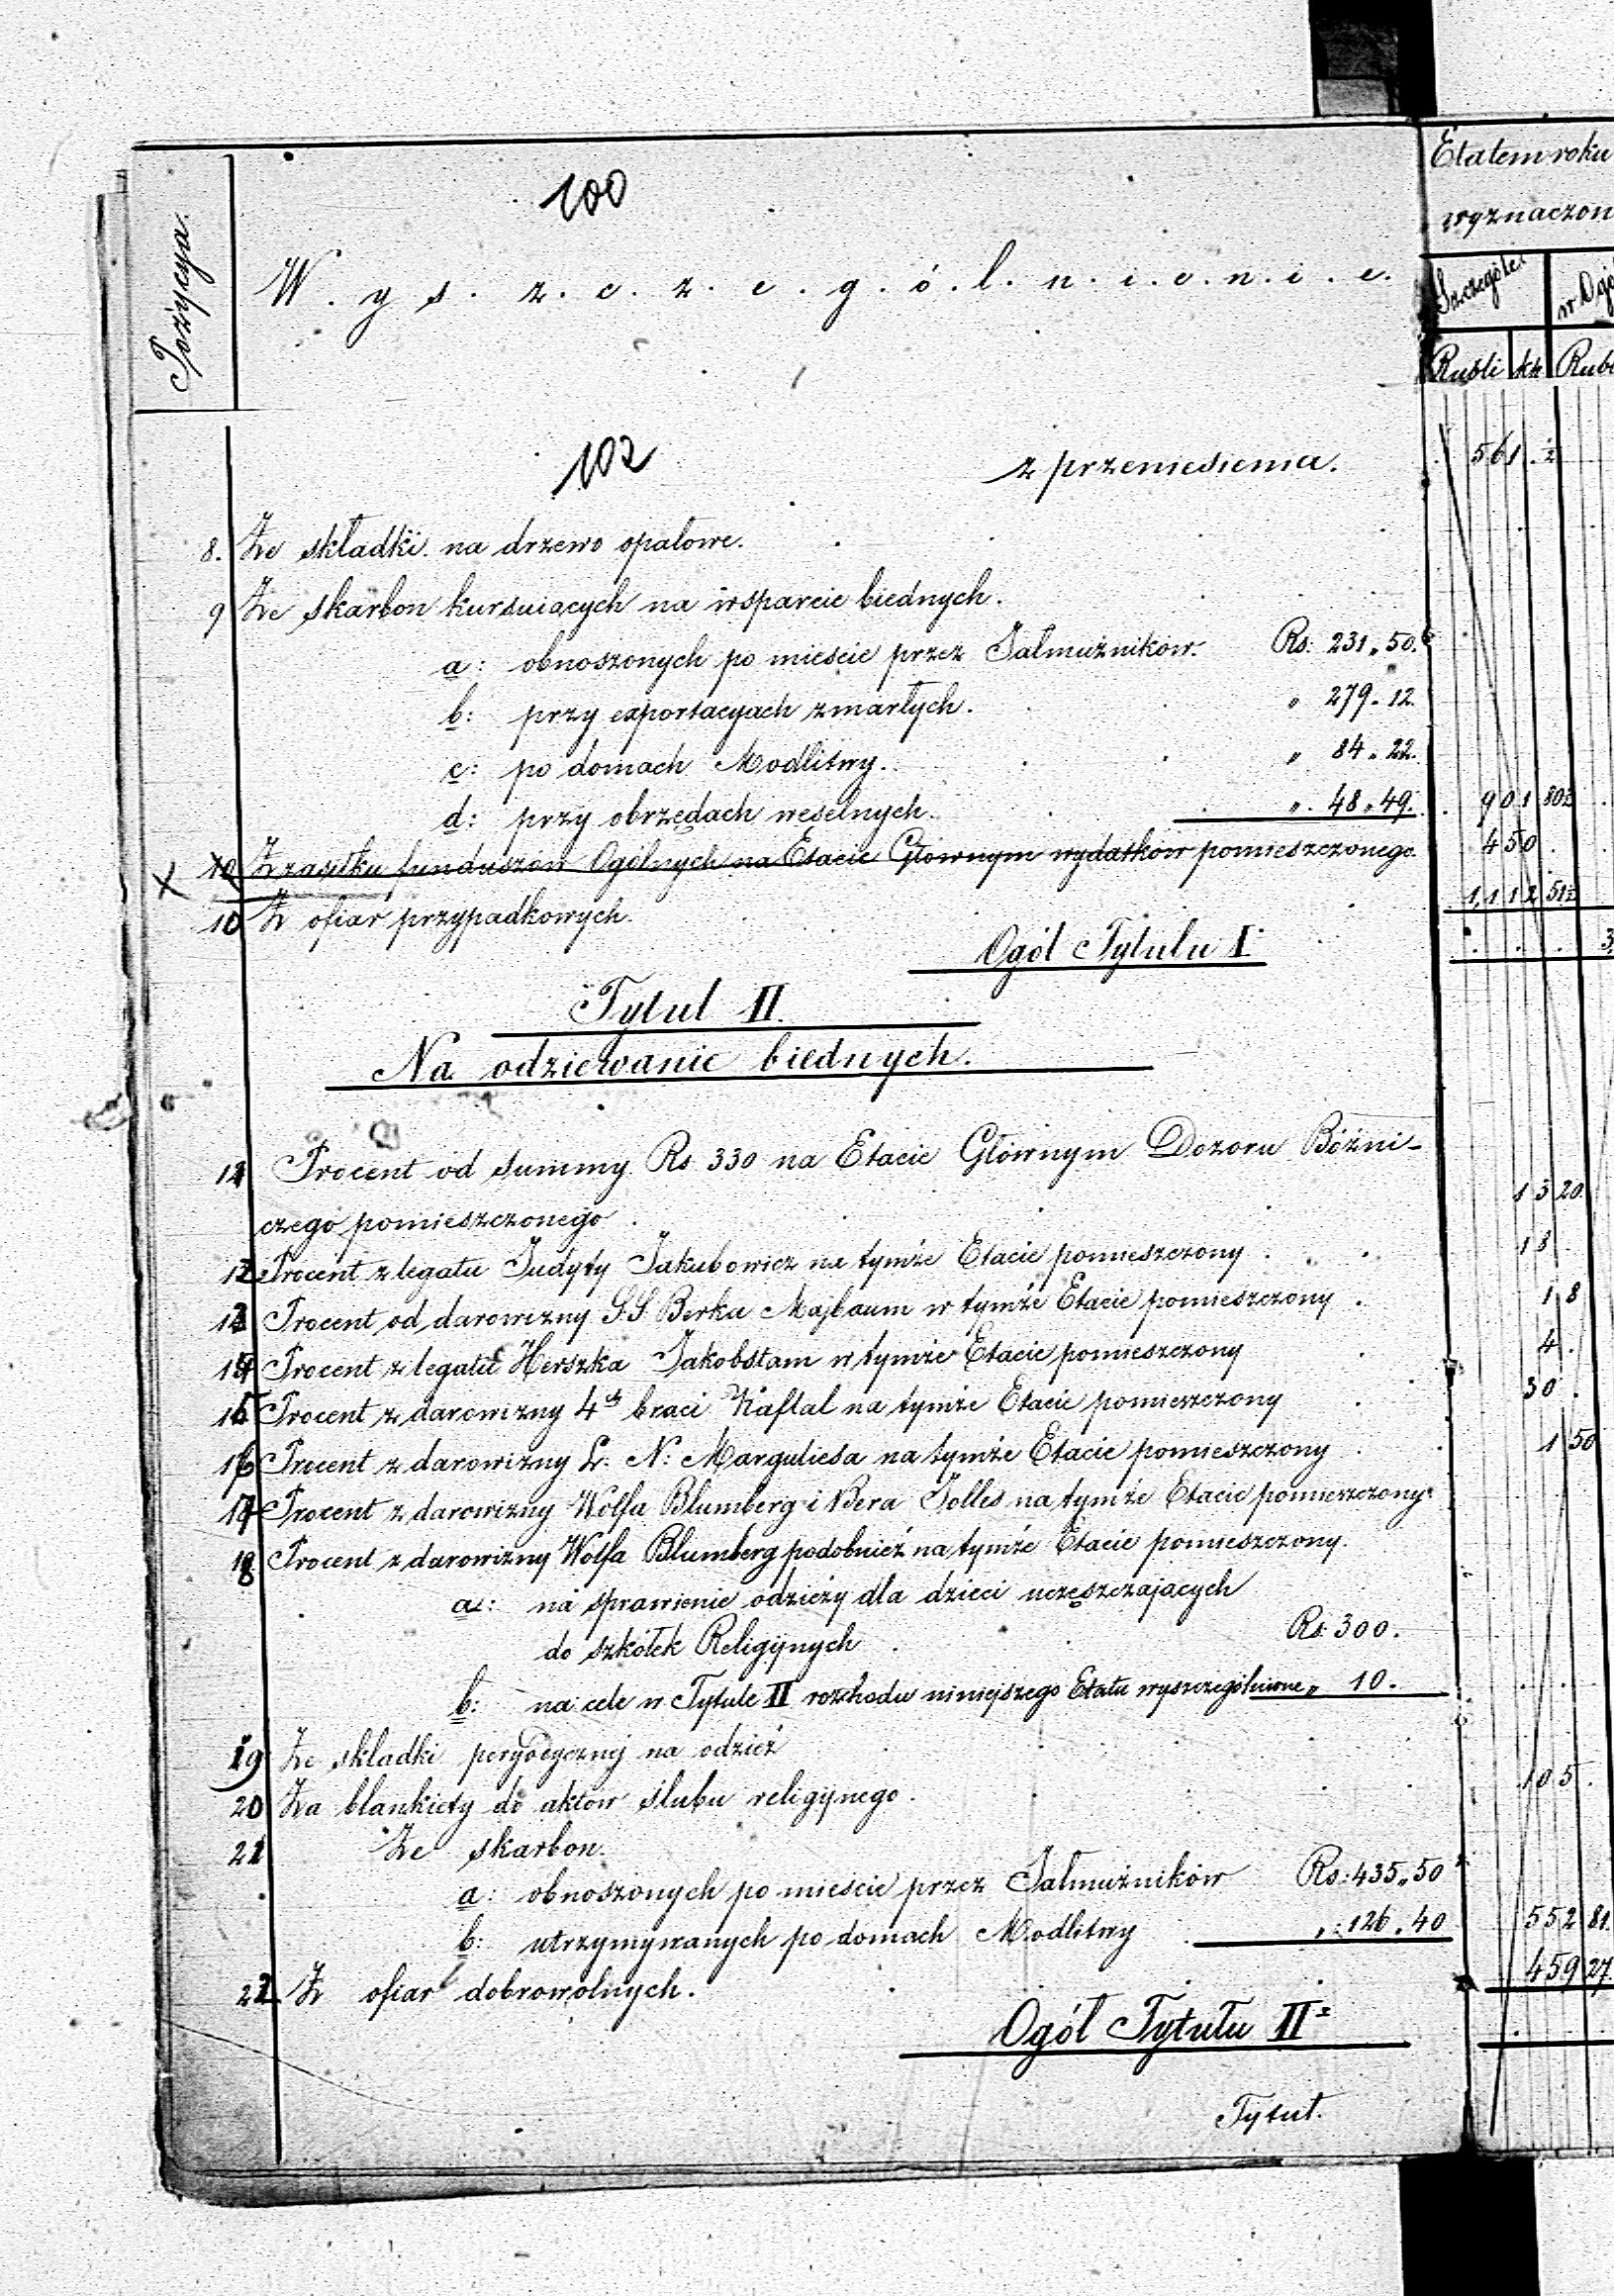 100
Pozycya.
W.y.s.z.c.z.e.g.ó.l.n.i.e.n.i.e.
Etatem roku
wyznaczon
Szczególe
w Ogó
Rubli kk Rub
102
z przeniesienia. 561. 2
8. Ze składki na drzewo opałowe.
9 Ze skarbon kursuiących na wsparcie biednych.
a: obnoszonych po mieście przez Jałmużników. Rs: 231.50.
b: przy exportacyach zmarłych. " 279.12.
c: po domach Modlitwy. " 84.22.
d: przy obrzędach weselnych. " 48.49. 901 80½
10 Z zasiłku funduszów Ogólnych na Etacie Głownym wydatków pomieszczonego. 450
10 Z ofiar przypadkowych. 1,112 51½
Ogół Tytułu I.
Tytuł II.
Na odziewanie biednych.
11 Procent od summy Rs 330 na Etacie Głównym Dozoru Bóżni-
czego pomieszczonego. 13 20.
12 Procent z legatu Judyty Jakubowicz na tymże Etacie pomieszczony. 18
13 Procent od darowizny S.S Berka Majbaum w tymże Etacie pomieszczony. 1 8
14 Procent z legatu Herszka Jakobstam w tymże Etacie pomieszczony 4.
15 Procent z darowizny 4ch braci Naftal na tymże Etacie pomieszczony 30.
16 Procent z darowizny L. N: Marguliesa na tymże Etacie pomieszczony. 1 50
17 Procent z darowizny Wolfa Blumberg i Bera Jolles na tymże Etacie pomieszczony
18 Procent z darowizny Wolfa Blumberg podobnież na tymże Etacie pomieszczony.
a: na sprawienie odzieży dla dzieci uczęszczających
do szkółek Religijnych Rs 300.
b: na cele w Tytule II rozchodu niniejszego Etatu wyszczególnione " 10.
19 Ze składki peryodycznej na odzież
20 Za blankiety do aktów ślubu religijnego. 105.
21 Ze skarbon.
a: obnoszonych po mieście przez Jałmużników Rs: 435.50
b: utrzymywanych po domach Modlitwy ": 126.40 552 81.
22 Z ofiar dobrowolnych. 459 27.
Ogół Tytułu II
Tytuł.